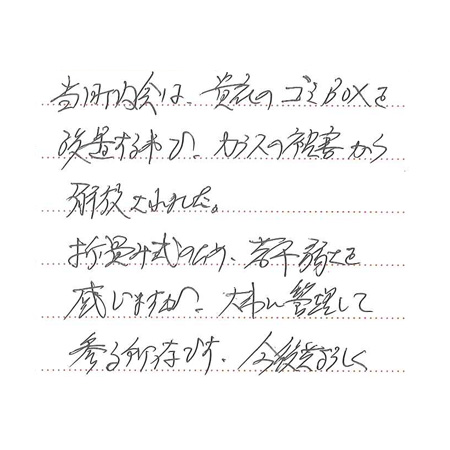 当町内会は、貴社のゴミBOXを
設置する事で、カラスの被害から
解放された。
折畳み式のため、若干弱さを
感じますが、大切に管理して
参る所存です。今後共よろしく